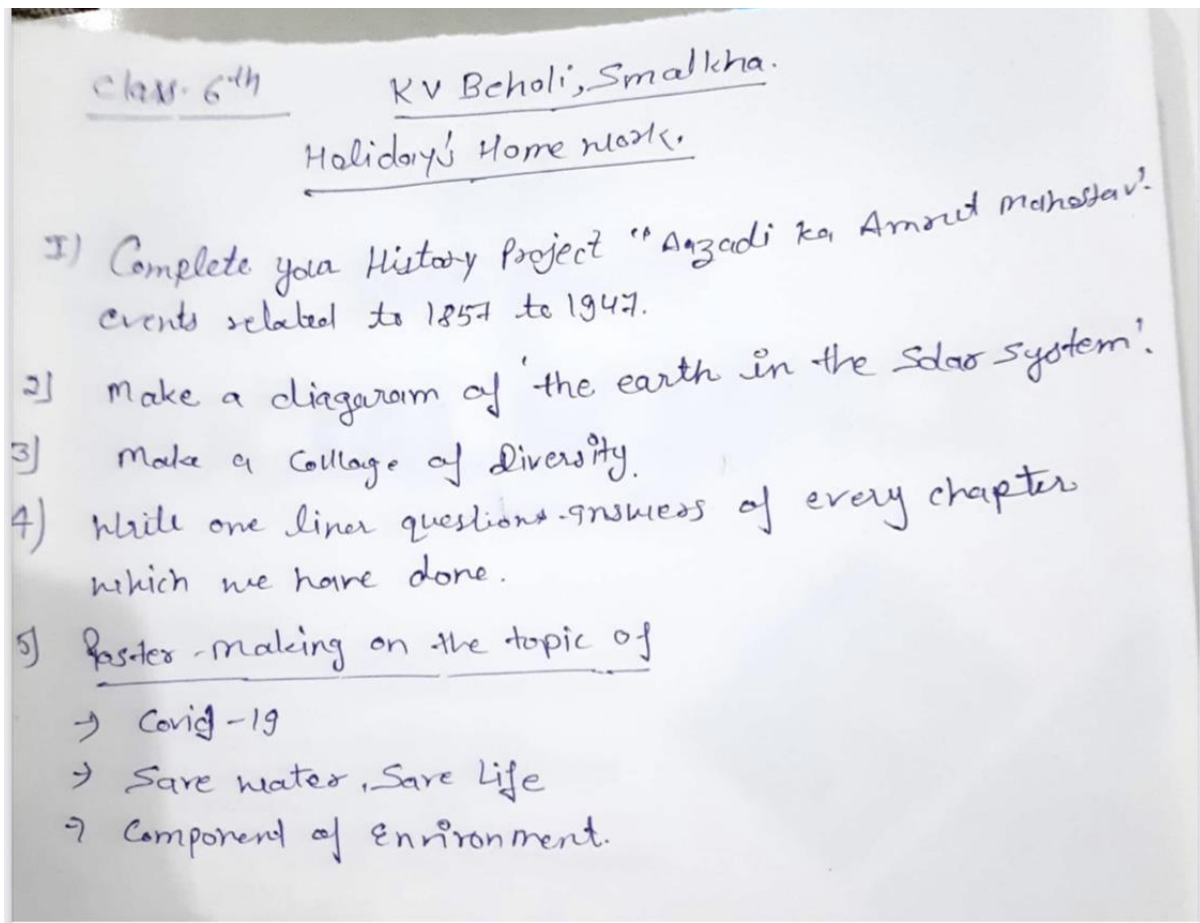 Class. 6th KV Beholi, Smalkha.
Holiday's Home Work.
1) Complete your History Project "Aazadi ka Amrut Mahostav".
events related to 1857 to 1947.
2] Make a diagaram of 'the earth in the Solar System'.
3] Make a Collage of Diversity.
4) Write one liner questions-answers of every chapter
which we have done.
5] Poster-making on the topic of
→ Covid-19
→ Save water, Save Life
→ Component of Environment.